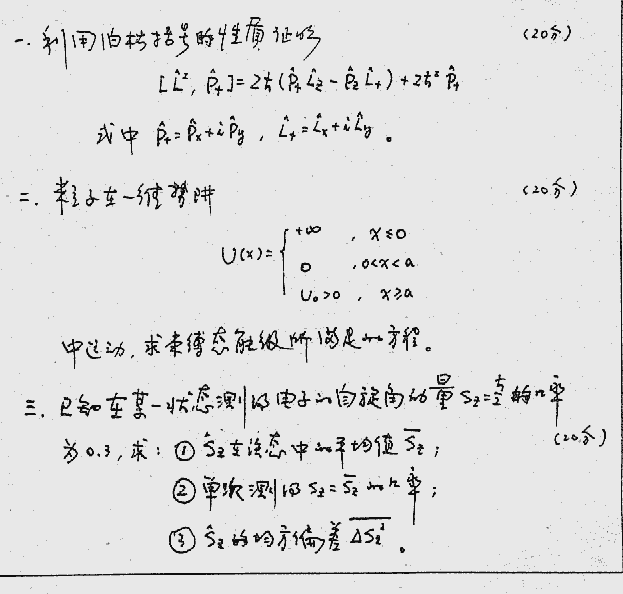 一. 利用泊松括号的性质证明 (20分)
[L̂², P̂₊]=2ħ(P̂₊L̂z - P̂zL̂₊)+2ħ²P̂₊
式中 P̂₊=P̂x+iP̂y , L̂₊=L̂x+iL̂y 。
二. 粒子在一维势阱 (20分)
U(x)={ +∞ , x≤0
0 , 0<x<a
U₀>0 , x≥a
中运动, 求束缚态能级所满足的方程。
三. 已知在某一状态测得电子的自旋角动量 Sz=ħ/2 的几率
为0.3, 求: ① Ŝz在该态中的平均值 S̅z ; (20分)
② 单次测得 Sz=S̅z 的几率;
③ Ŝz的均方偏差 \overline{ΔSz²} 。